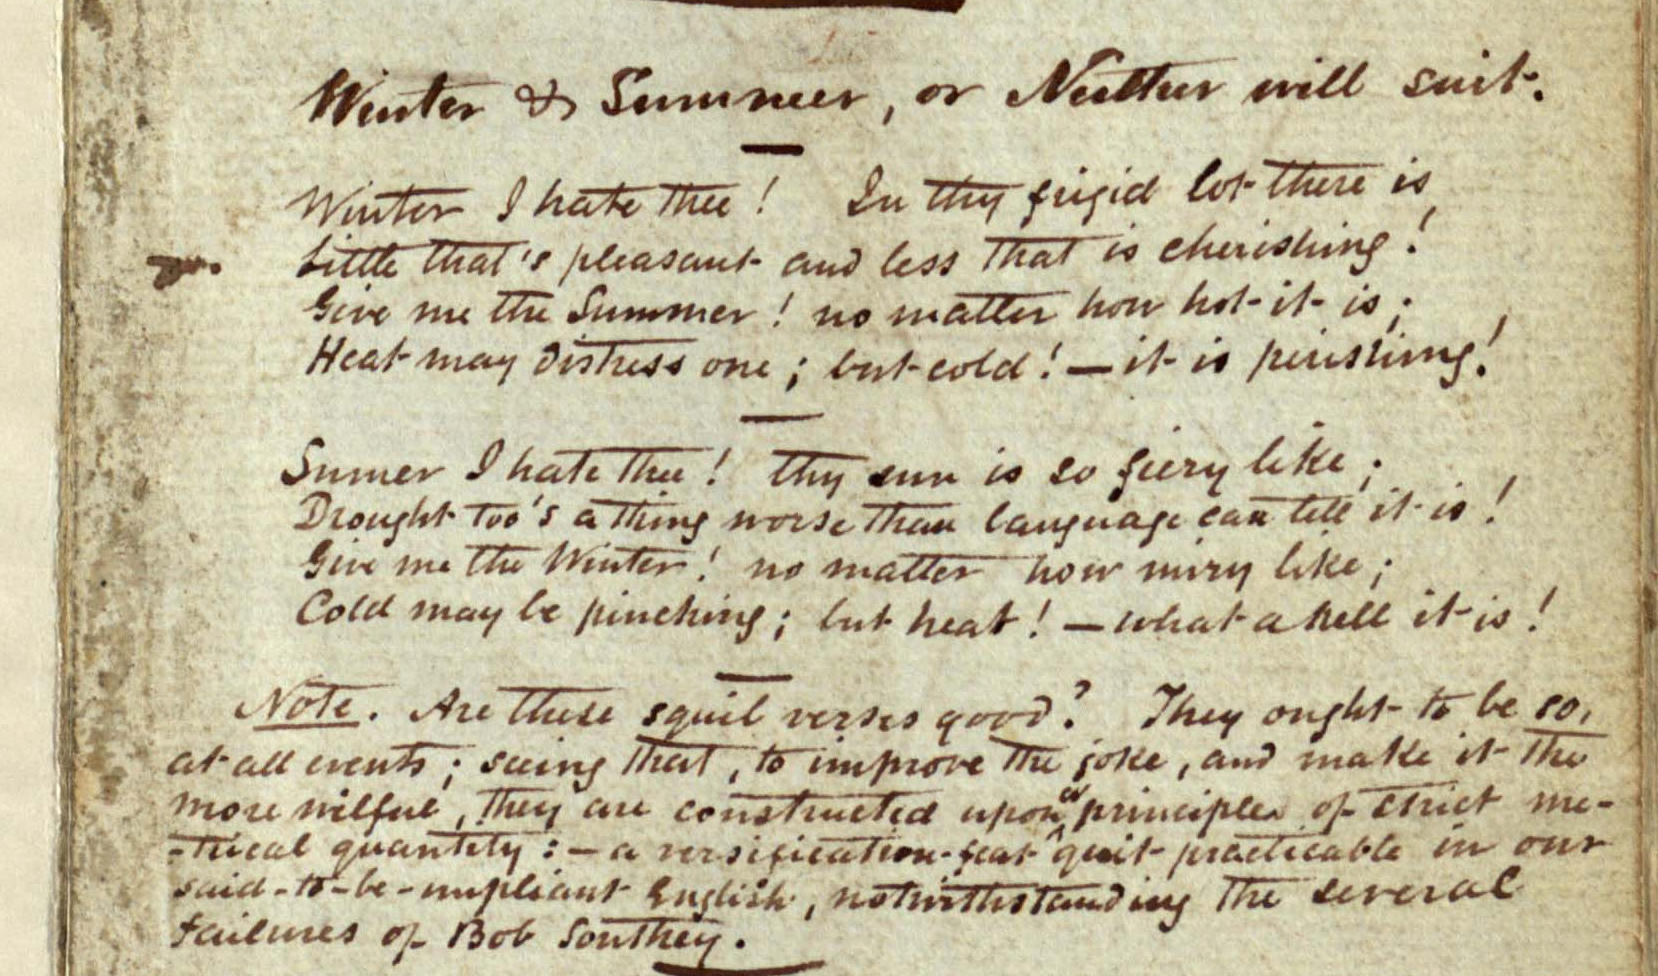 Winter & Summer, or Neither will suit.
Winter I hate thee! In thy frigid lot there is
Little that's pleasant and less that is cherishing!
Give me the Summer! no matter how hot it is;
Heat may distress one; but cold! — it is perishing!
Sumer I hate thee! thy sun is so fiery like;
Drought too's a thing worse than language can tell it is!
Give me the Winter! no matter how miry like;
Cold may be pinching; but heat! — what a hell it is!
Note. Are these squib verses good? They ought to be so,
at all events; seeing that, to improve the joke, and make it the
more wilful, they are constructed upon principles of strict me-
-trical quantity: — a versification-feat quit practicable in our
said-to-be-unpliant English, notwithstanding the several
failures of Bob Southey.